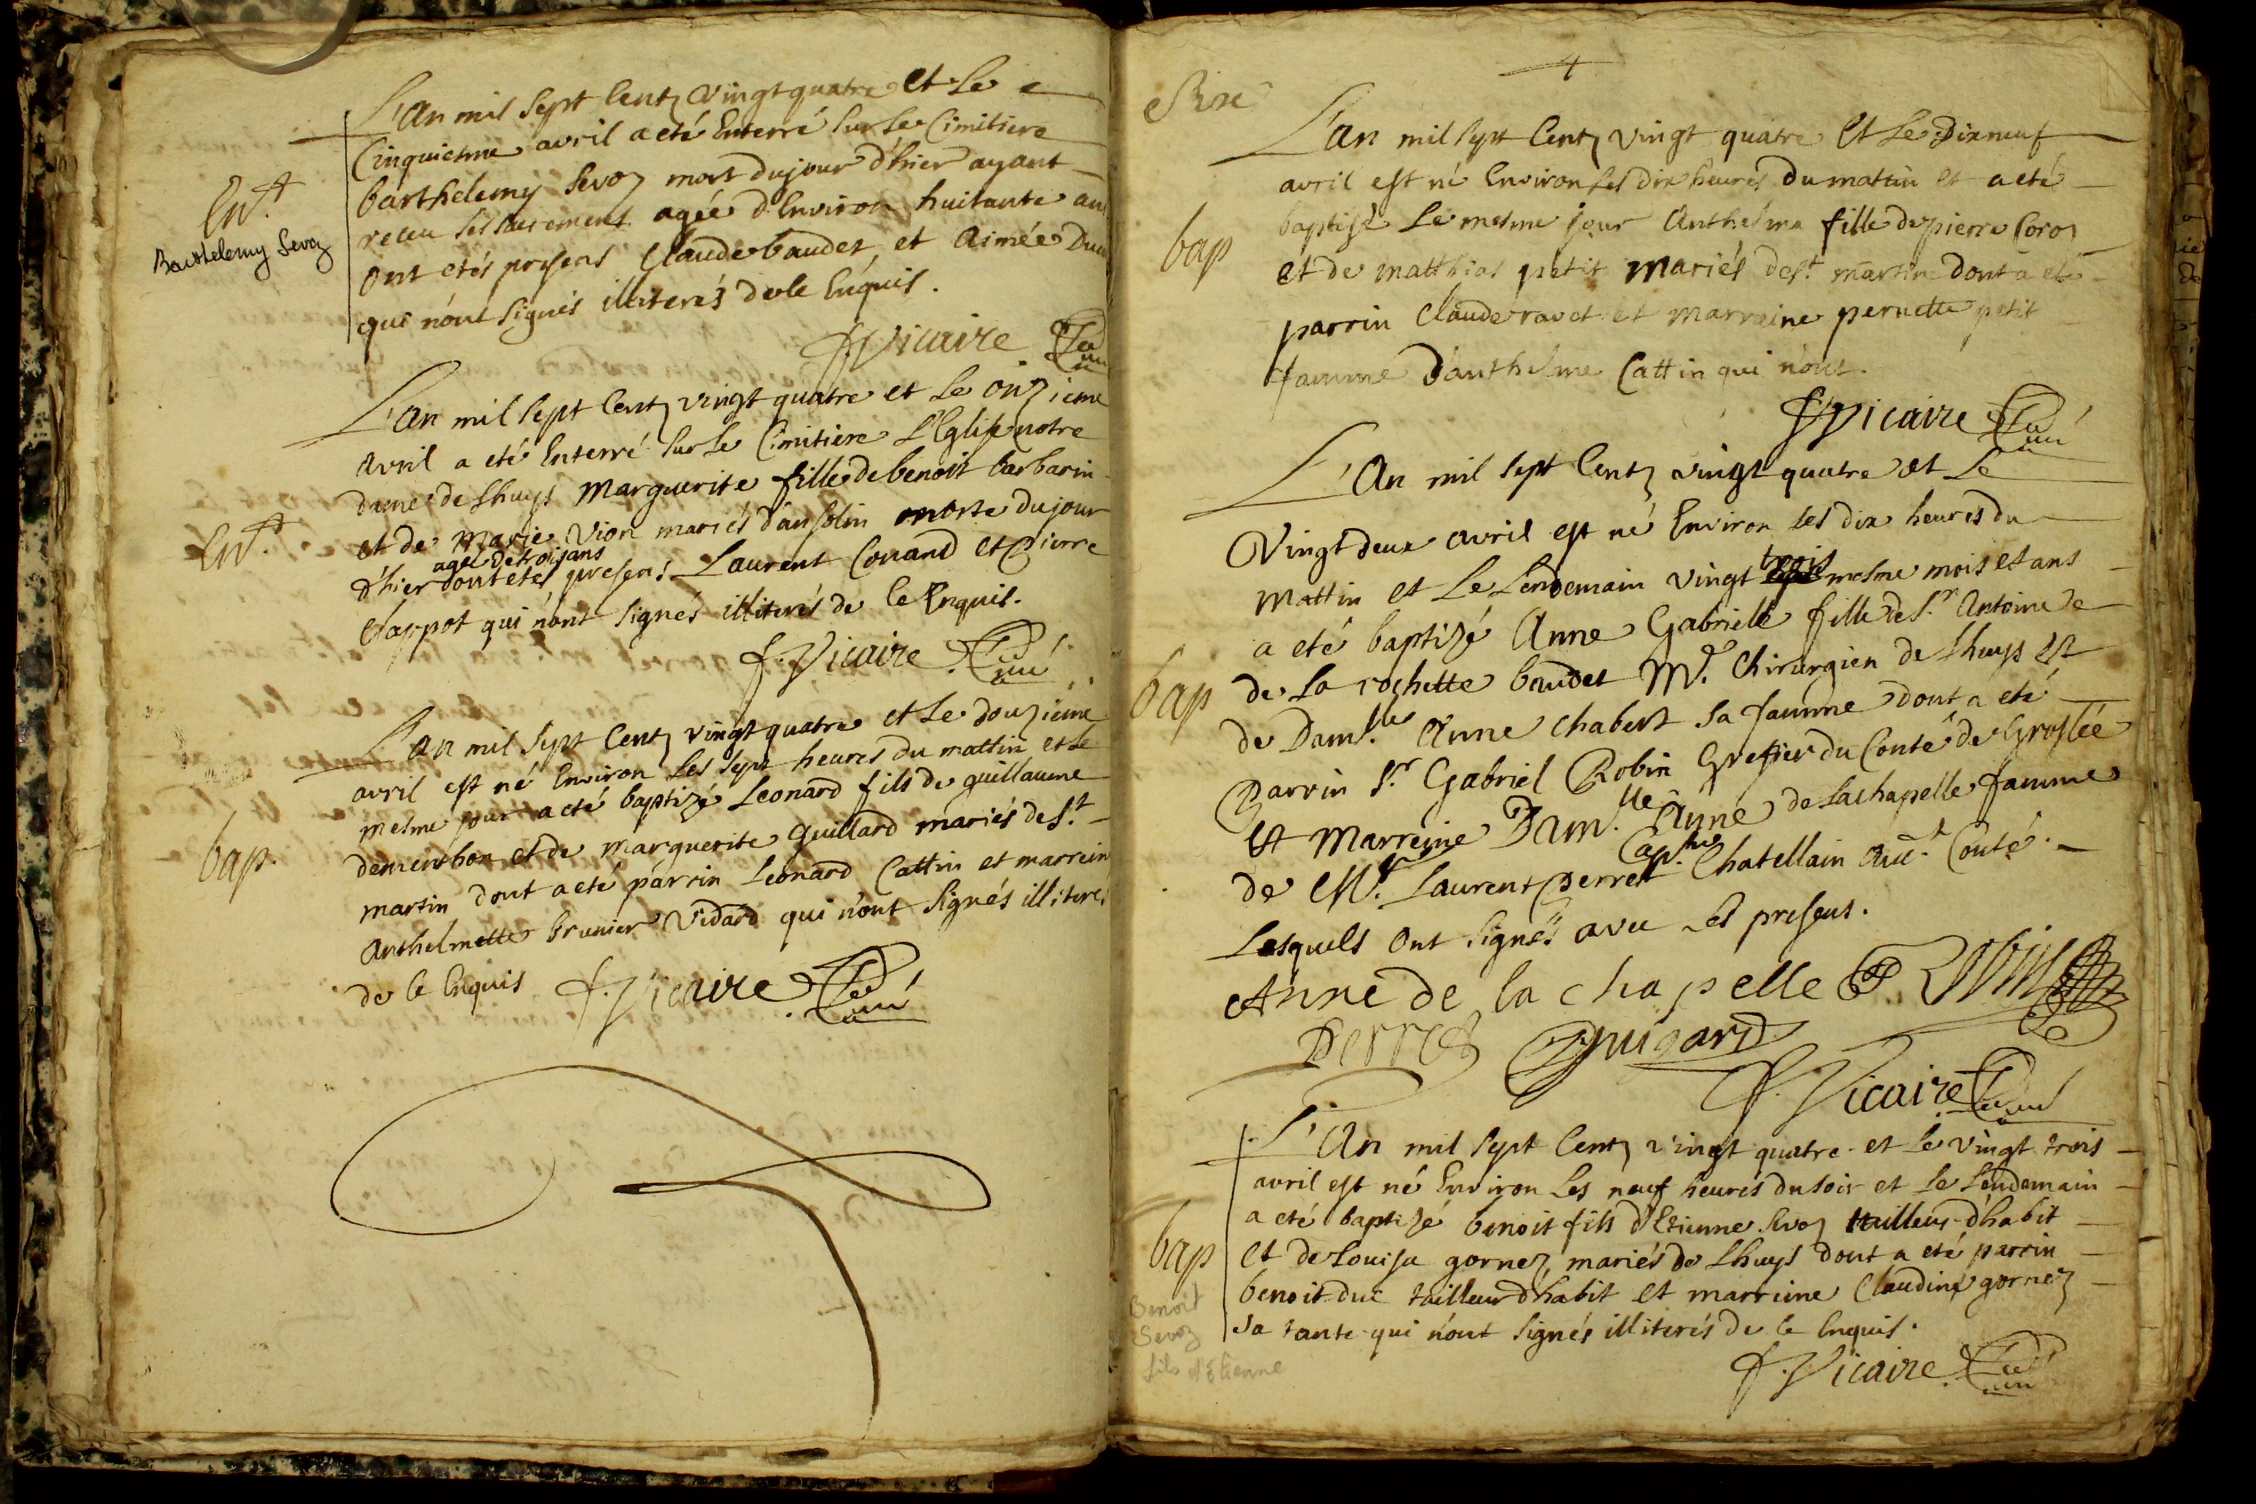 L'an mil sept Cent vingt quatre et le
Cinquiesme avril a eté Enterré sur le Cimitiere
barthelemy Sevoz mort du jour d'hier ayant
receu les sacrements agée d'Environ huitante an
Ent
Barthelemy Sevoz
ont etés presens Claude baudet et Aimée Duc
qui n'ont signés illiterés de le Enquis.
f. Vicaire Curé
L'an mil sept Cent vingt quatre et le onzieme
avril a eté Enterré sur le Cimitiere L'Eglise notre
dame de Lhuys Marguerite fille de benoit barbarin
et de Marie Vion mariés d'ansolin morte du jour
Ent
agée de trois ans
d'hier dont etés presens Laurent Conand et Pierre
Clappot qui n'ont signés illiterés de le Enquis.
f. Vicaire Curé
L'an mil sept Cent vingt quatre et le douzieme
avril est né Environ les sept heures du mattin et le
mesme jour a eté baptizé Leonard fils de guillaume
bap.
dementhon et de marguerite Guillard mariés de St
martin dont a eté parrin Leonard Cattin et marrein
Anthelmette brunier vidard qui n'ont signés illiterés
de le Enquis f. Vicaire Curé
4
L'an mil sept Cent vingt quatre et le Dix neuf
avril est né Environ les dix heures du mattin et a eté
baptizé le mesme jour Anthelma fille de pierre Coroz
bap
et de matthias petit mariés de St martin dont a eté
parrin Claude ravet et marraine pernette petit
famme d'anthelme Cattin qui n'ont.
f. Vicaire Curé
L'an mil sept Cent vingt quatre et le
Vingt deux avril est né Environ les dix heures du
mattin et le Lendemain vingt trois mesme mois et ans
a eté baptizé Anne Gabrielle fille de Sr Antoine de
bap
de la rochette baudet Me Chirurgien de Lhuys et
de Damlle Anne Chabert sa famme dont a eté
Parrin Sr Gabriel Robin Greffier du Conté de Groslée
et Marreine Damlle Anne de Lachapelle famme
de Mr Laurent Perret Capne Chatellain Conté.
Lesquels ont signés avec les presens.
Anne de la chapelle Robin
Perret Guigard
f. Vicaire Curé
L'An mil sept Cent vingt quatre et le vingt trois
avril est né Environ les neuf heures du soir et le Lendemain
a eté baptizé benoit fils d'Etienne Sevoz tailleur d'habit
bap
et de Louise gornez mariés de Lhuys dont a eté parrin
benoit duc tailleur d'habit et marriene Claudine gornez
Benoit
Sevoz
fils d'Etienne
sa tante qui n'ont signés illiterés de le Enquis.
f. Vicaire Curé